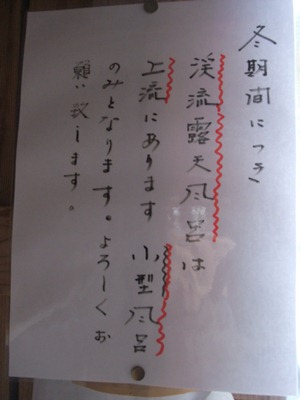 冬期間につき
渓流露天風呂は
上流にあります 小型風呂
のみとなります。よろしくお
願い致します。